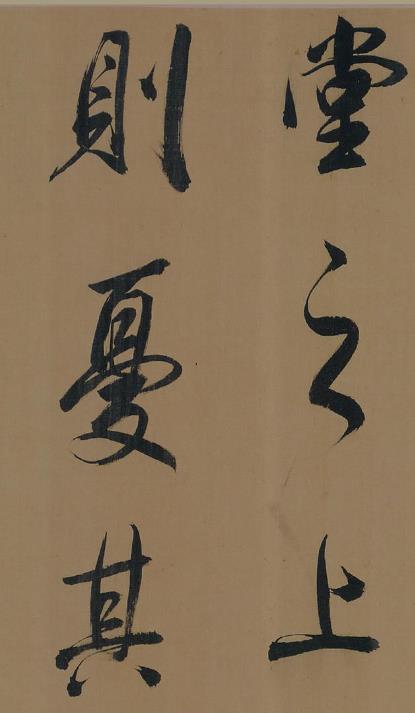 堂之上
則憂其